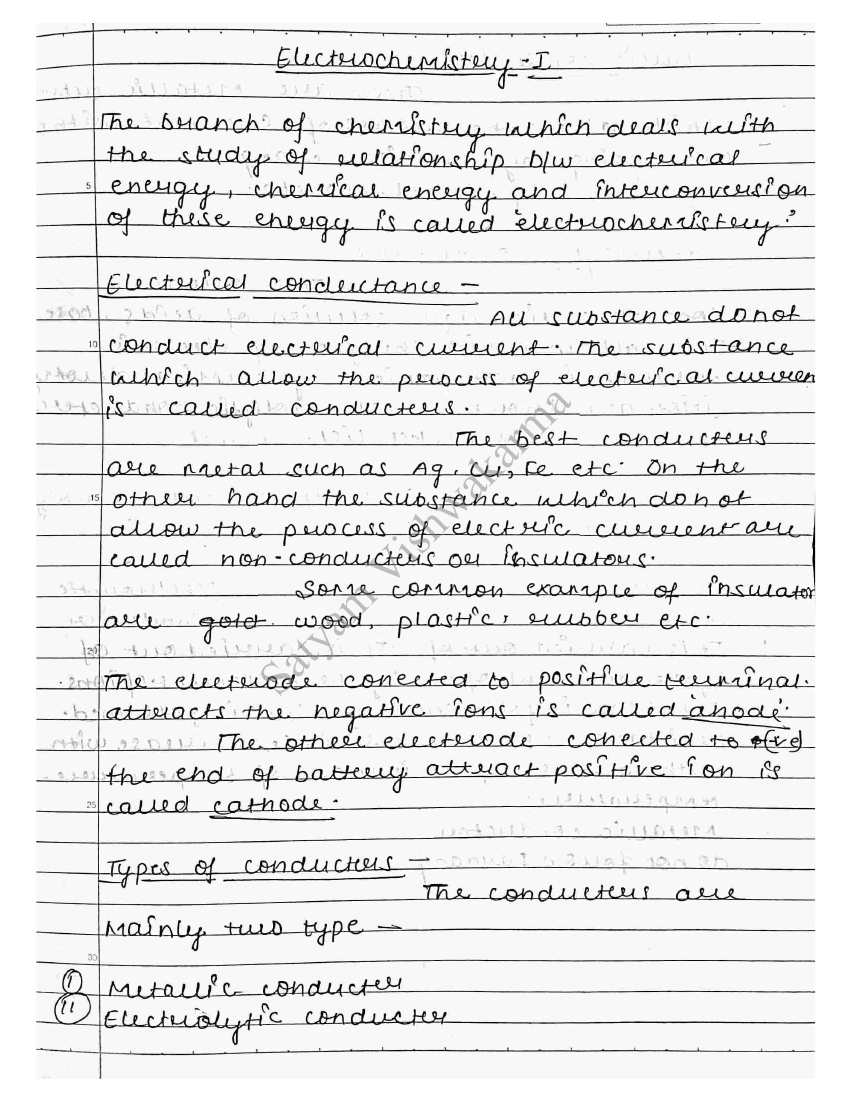 Electrochemistery - I
The branch of chemistery which deals with
the study of relationship b/w electrical
5 energy, chemical energy and interconversion
of these energy is called 'electrochemistery.'
Electrical conductance -
All substance do not
10 conduct electrical current. The substance
which allow the process of electrical curren
is called conducters.
The best conducters
are metal such as Ag, Cu, Fe etc. On the
15 other hand the substance which do not
allow the process of electric current are
called non-conducters or insulators.
Some common example of insulator
are gold wood, plastic, rubber etc.
20
The electrode conected to positive terminal.
attracts the negative ions is called anode.
The other electrode conected to (-ve)
the end of battery attract positive ion is
25 called cathode.
Types of conducters -
The conducters are
Mainly two type →
30
(i) Metallic conducter
(ii) Electrolytic conducter
Satyam Vishwakarma